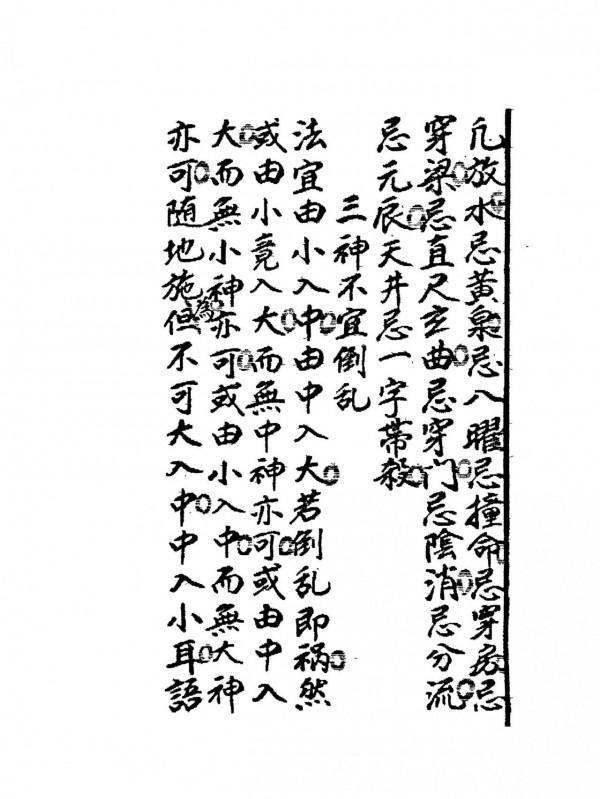 凡放水忌黃泉忌八曜忌撞命忌穿房忌
穿梁忌直尺玄曲忌穿门忌陰消忌分流
忌元辰天井忌一字帶殺
三神不宜倒乱
法宜由小入中由中入大若倒乱即禍然
或由小竟入大而無中神亦可或由中入
大而無小神亦可或由小入中而無大神
亦可随地施為但不可大入中中入小耳語